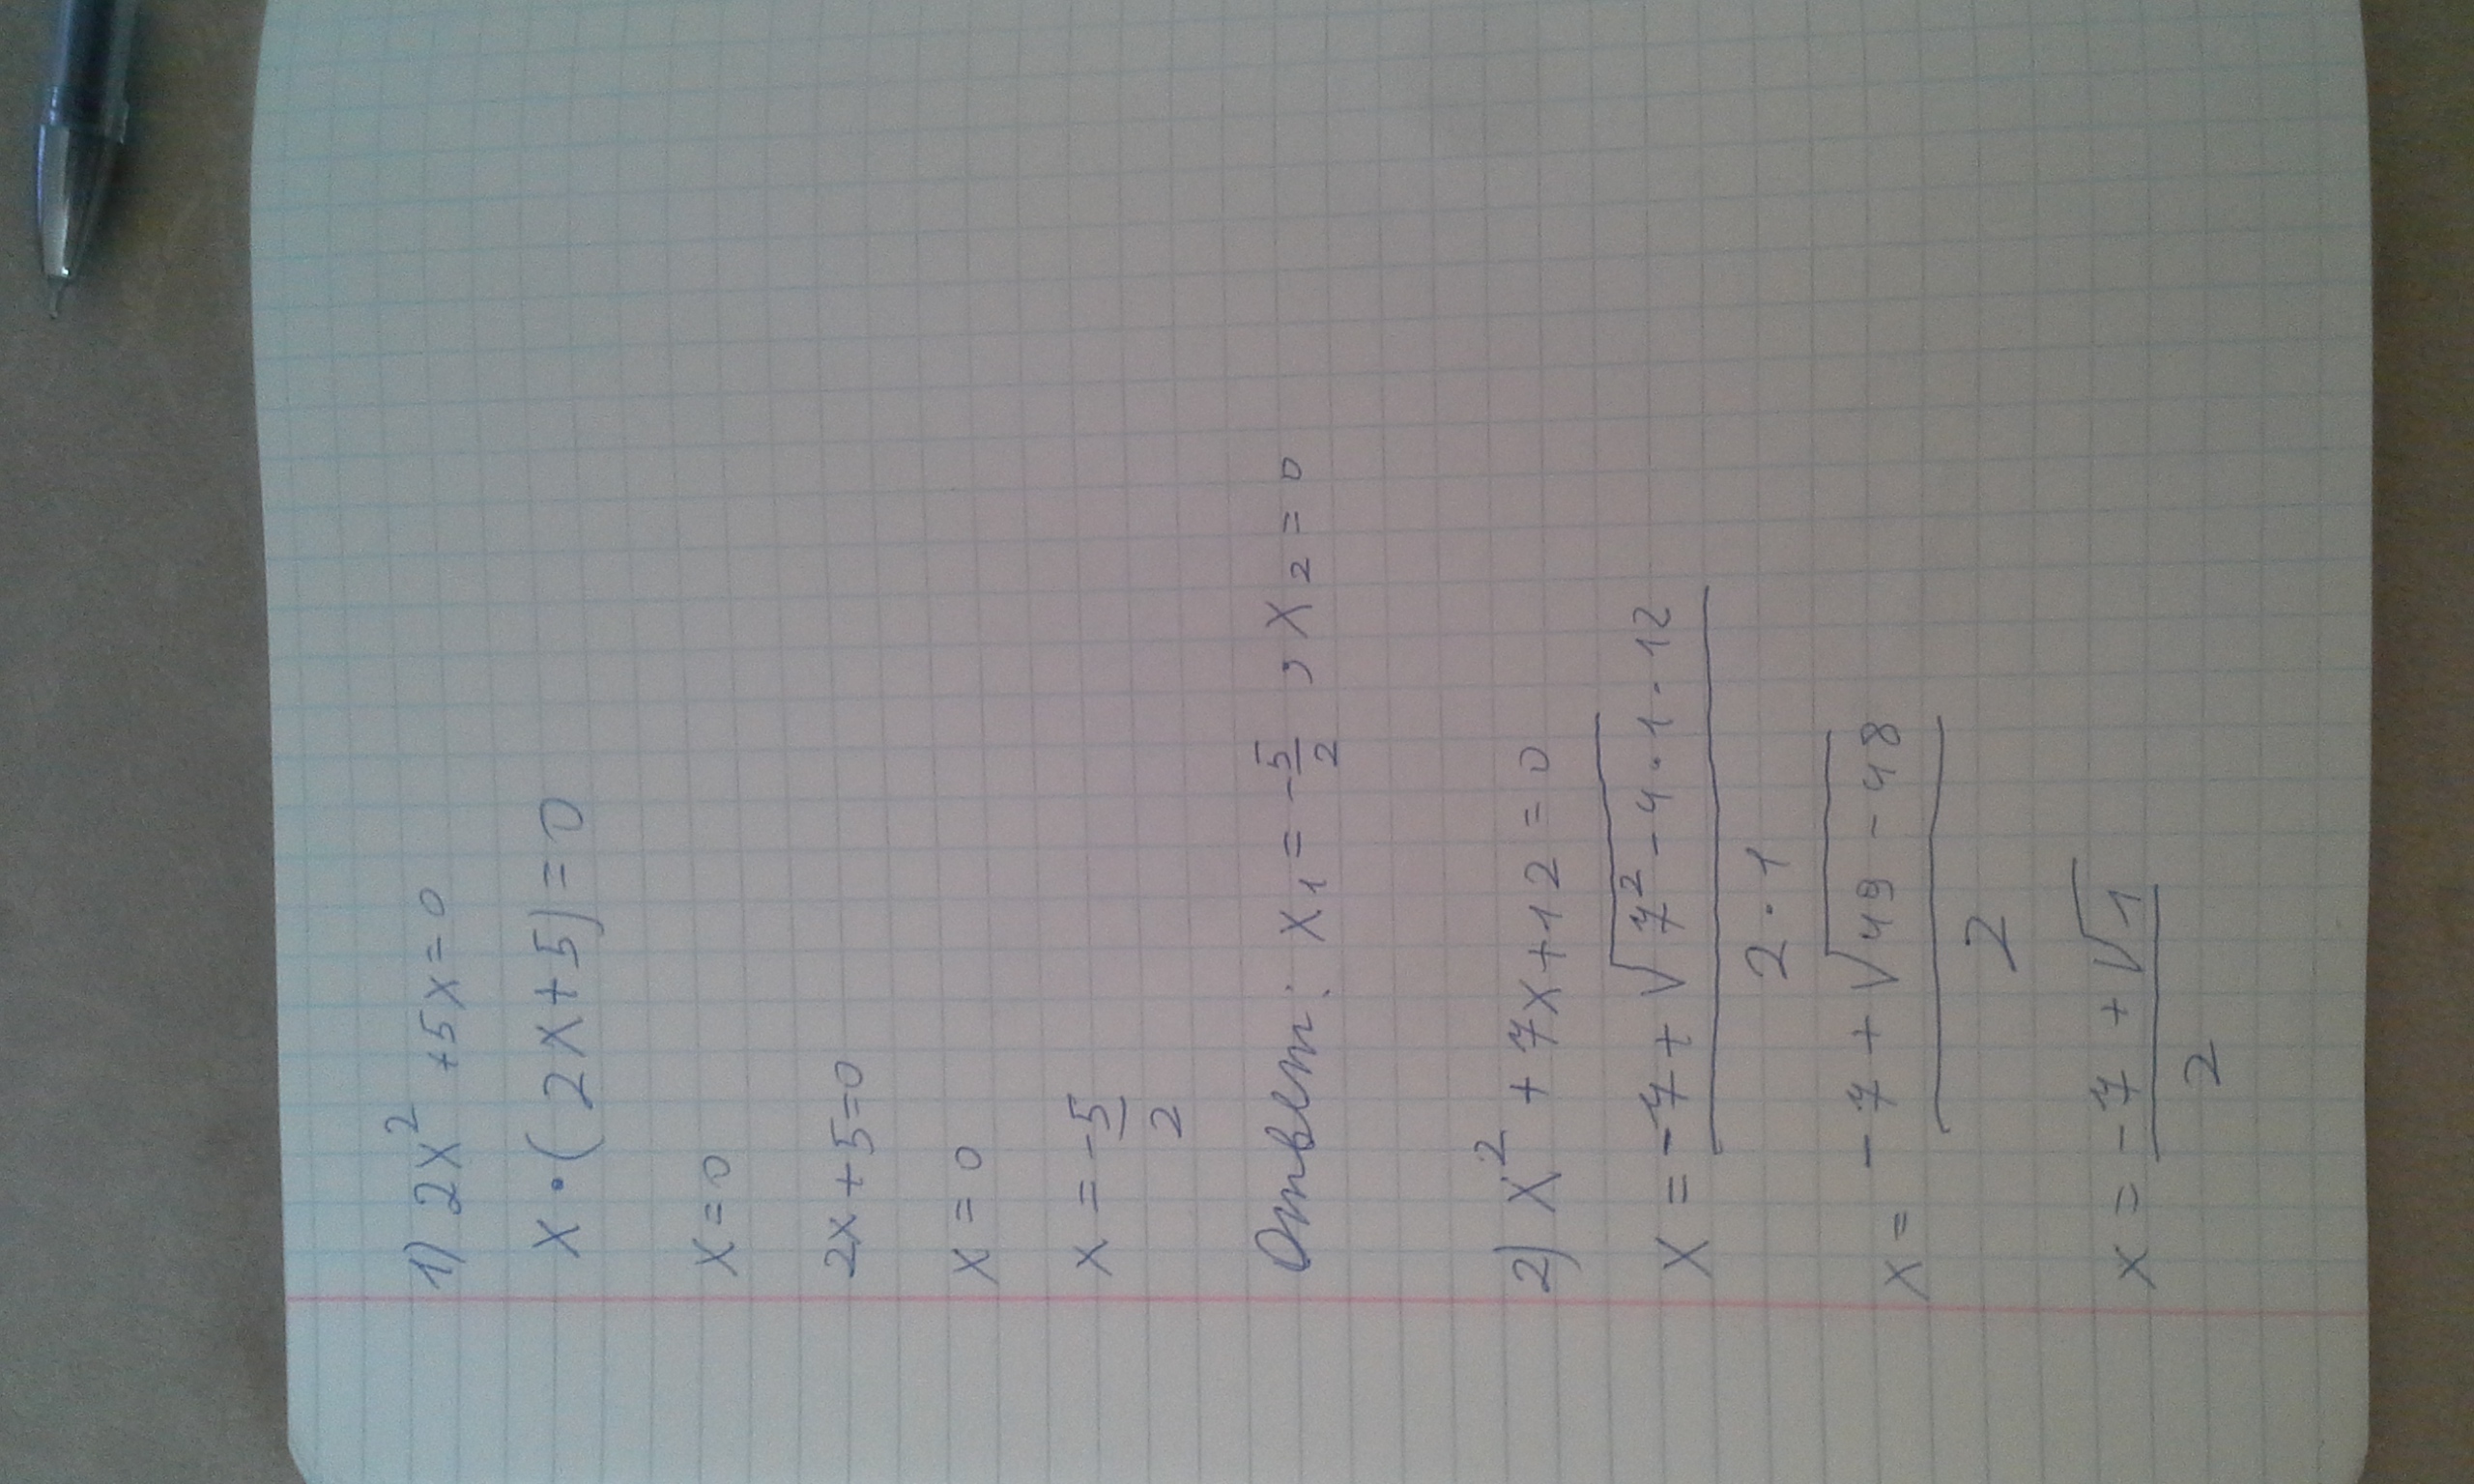 1) 2x² + 5x = 0
x · (2x + 5) = 0
x = 0
2x + 5 = 0
x = 0
x = -5/2
Ответ: x₁ = -5/2, x₂ = 0
2) x² + 7x + 12 = 0
x = (-7 + √(7² - 4 · 1 · 12))/(2 · 1)
x = (-7 + √(49 - 48))/2
x = (-7 + √1)/2